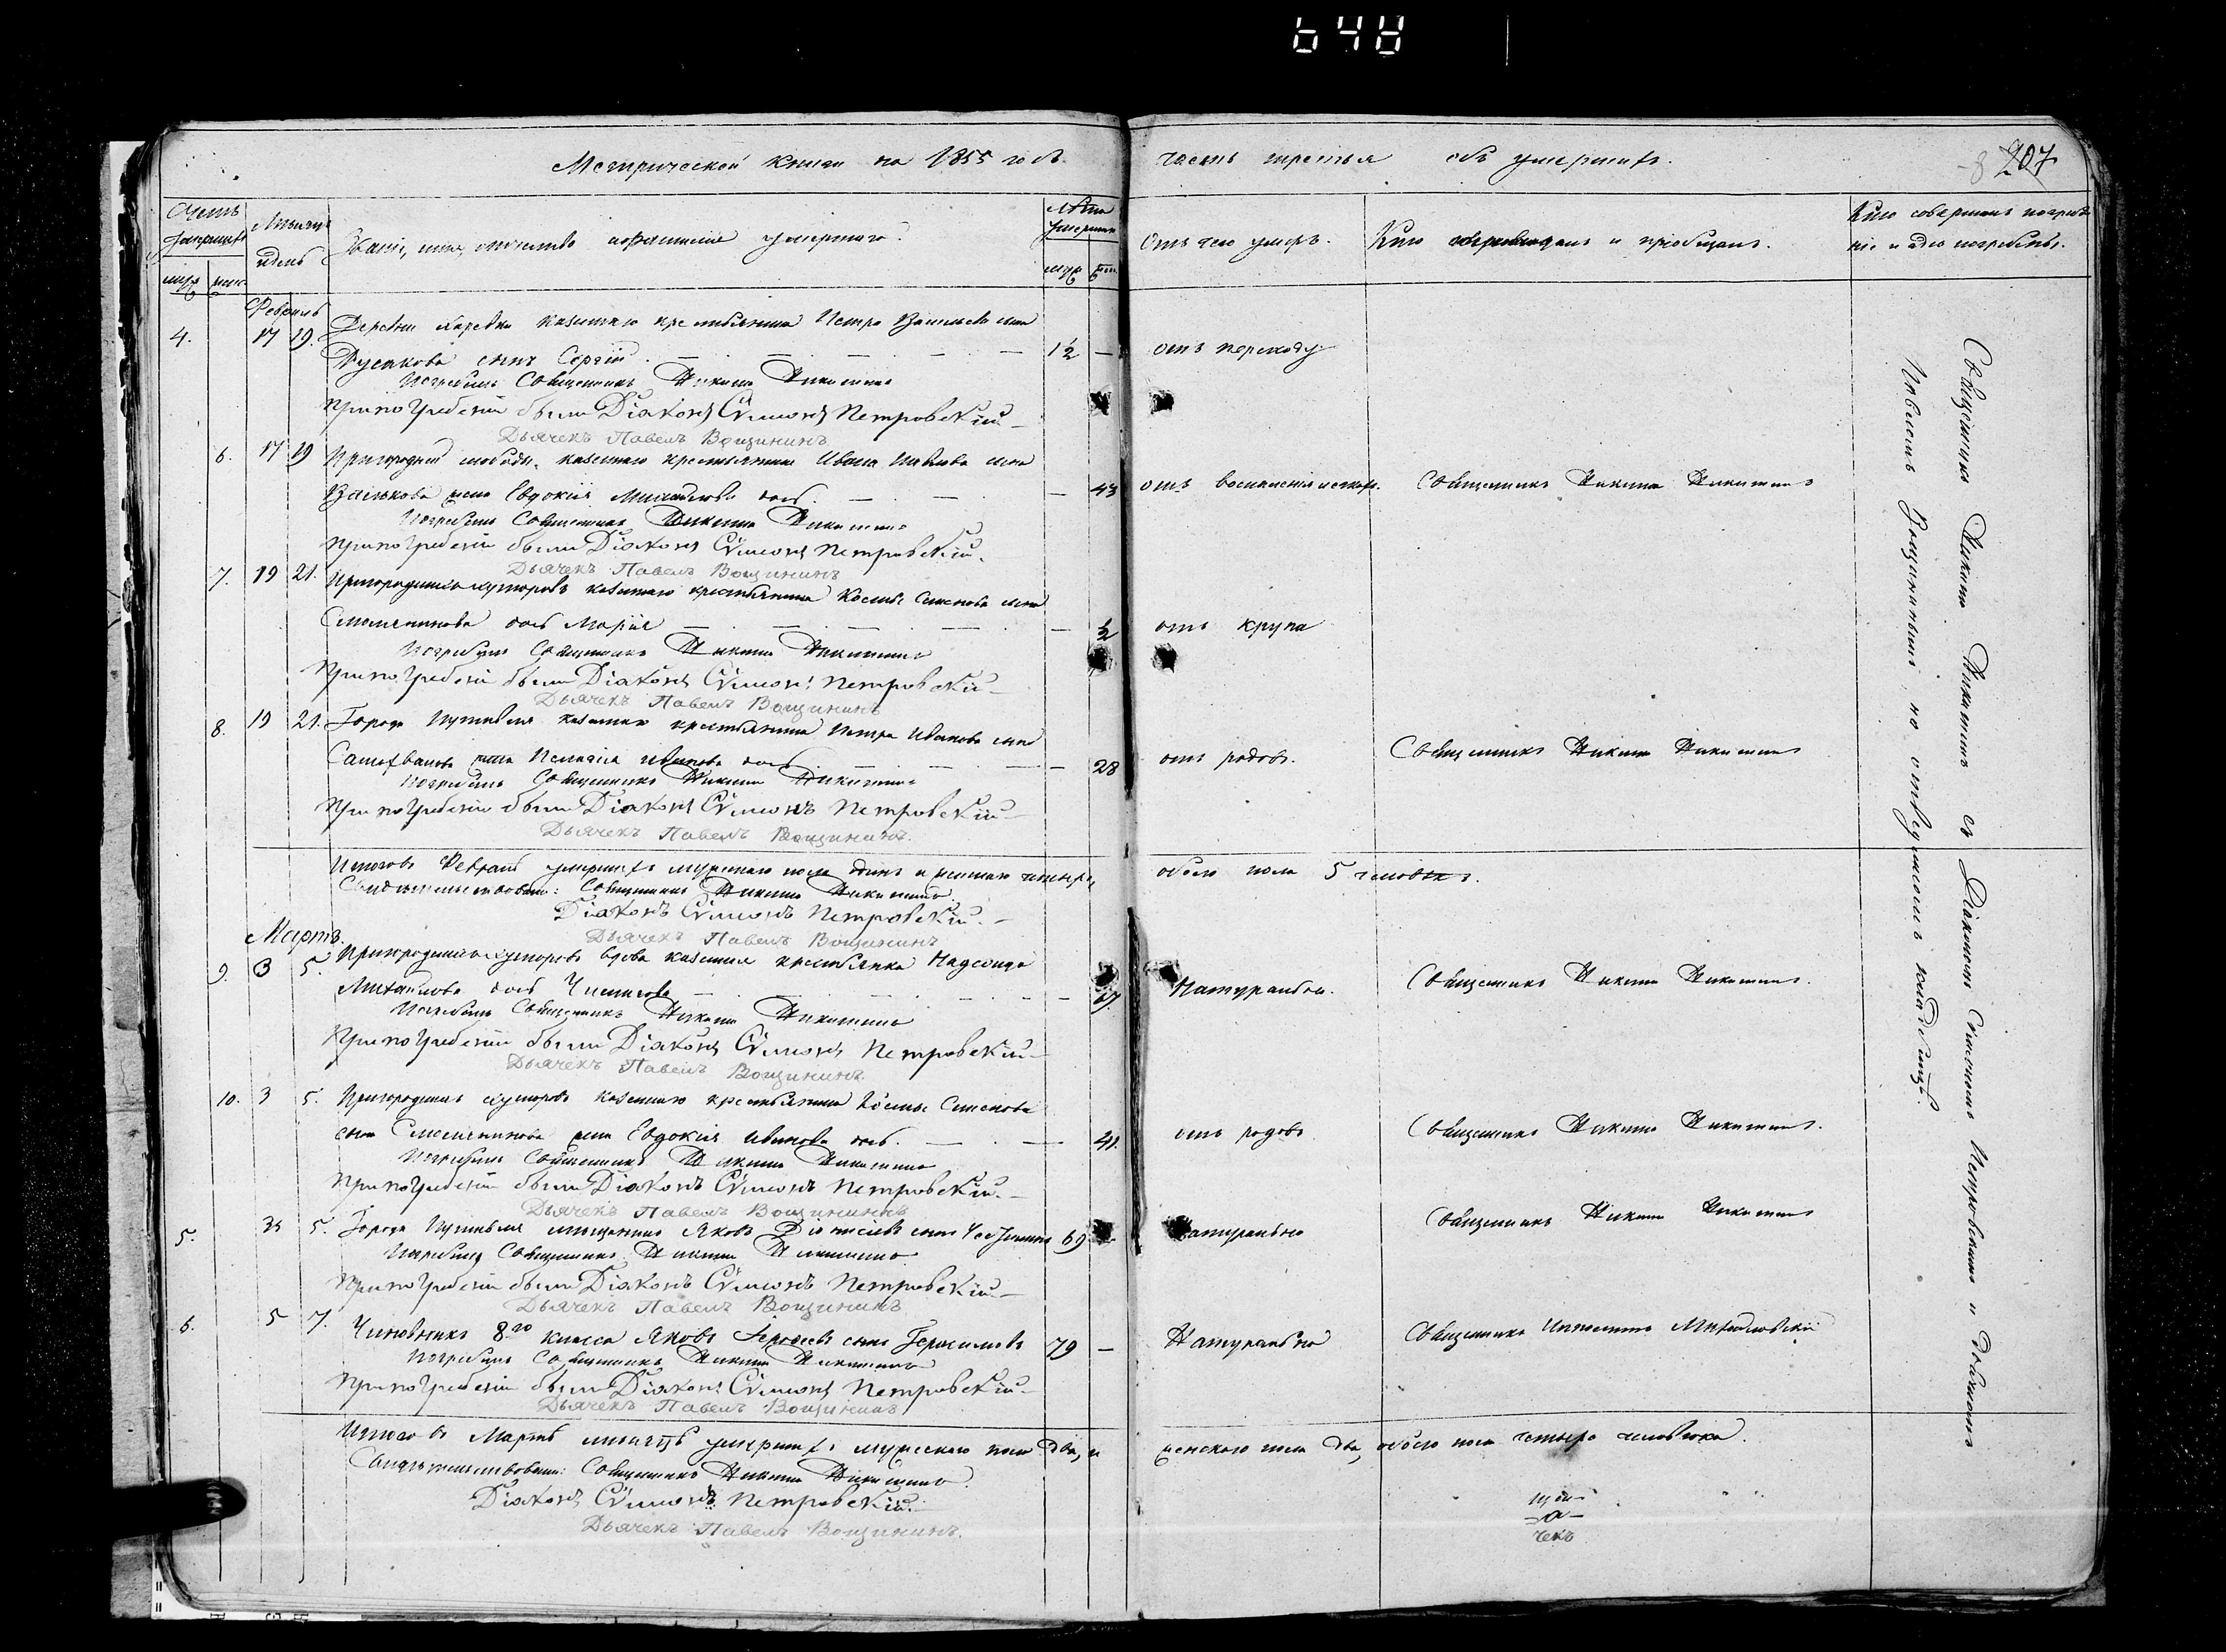 648
Метрической книги на 1855 годъ
часть третья объ умершихъ.
207
Счетъ умершихъ
Мѣсяцъ и день
Званіе, имя, отчество и фамилія умершаго.
Лѣта умершаго
Отъ чего умеръ.
Кто исповѣдывалъ и пріобщалъ.
Кто совершалъ погребе
ніе и гдѣ погребены.
муж. жен.
муж. жен.
Февраль
4. 17 19. Деревни казеннаго крестьянина Петра Васильева сына
Русакова сынъ Сергій. 1½ — отъ
Погребалъ Священникъ Никита Никитинъ
При погребеніи были Діаконъ Сѷмеонъ Петровскій
Дьячекъ Павелъ Вощининъ
6. 17 19 Пригородней слободы казеннаго крестьянина Ивана Павлова сына
жена Евдокія Михайлова дочь. — 43 отъ воспаленія Священникъ Никита Никитинъ
Погребалъ Священникъ Никита Никитинъ
При погребеніи были Діаконъ Сѷмеонъ Петровскій.
Дьячекъ Павелъ Вощининъ
7. 19 21. Пригородныхъ хуторовъ казеннаго крестьянина Космы Семенова сына
дочь Марія — ½ отъ крупа
Погребалъ Священникъ Никита Никитинъ
При погребеніи были Діаконъ Сѷмеонъ Петровскій
Дьячекъ Павелъ Вощининъ
8. 19 21. Города Путивля казеннаго крестьянина Петра Иванова сына
жена Пелагія Иванова дочь — 28 отъ родовъ. Священникъ Никита Никитинъ
Погребалъ Священникъ Никита Никитинъ
При погребеніи были Діаконъ Сѷмеонъ Петровскій
Дьячекъ Павелъ Вощининъ.
Итого въ Февралѣ умершихъ мужескаго пола одинъ и женскаго четыре, обоего пола 5 человѣкъ.
Свидѣтельствовали: Священникъ Никита Никитинъ
Діаконъ Сѷмеонъ Петровскій.
Дьячекъ Павелъ Вощининъ
Мартъ.
9. 3 5. Пригородныхъ хуторовъ вдова казенная крестьянка Надежда
Михайлова дочь — 67. Натурально. Священникъ Никита Никитинъ.
Погребалъ Священникъ Никита Никитинъ
При погребеніи были Діаконъ Сѷмеонъ Петровскій
Дьячекъ Павелъ Вощининъ.
10. 3 5. Пригородныхъ хуторовъ казеннаго крестьянина Космы Семенова
сына жена Евдокія Иванова дочь. — 41. отъ родовъ Священникъ Никита Никитинъ.
Погребалъ Священникъ Никита Никитинъ
При погребеніи были Діаконъ Сѷмеонъ Петровскій.
Дьячекъ Павелъ Вощининъ
5. 5. Города Путивля мѣщанинъ Яковъ Діонисіевъ сынъ 69 Натурально Священникъ Никита Никитинъ
Погребалъ Священникъ Никита Никитинъ
При погребеніи были Діаконъ Сѷмеонъ Петровскій
Дьячекъ Павелъ Вощининъ
6. 5 7. Чиновникъ 8го класса Яковъ сынъ Герасимовъ 79 — Натурально Священникъ Ипполитъ
Погребалъ Священникъ Никита Никитинъ
При погребеніи были Діаконъ Сѷмеонъ Петровскій
Дьячекъ Павелъ Вощининъ
Итого въ Мартѣ мѣсяцѣ умершихъ мужескаго пола два, и женскаго пола два, обоего пола четыре человѣка.
Свидѣтельствовали: Священникъ Никита Никитинъ.
Діаконъ Сѷмеонъ Петровскій.
Дьячекъ Павелъ Вощининъ.
Священникъ Никита Никитинъ съ Діакономъ Симеономъ Петровскимъ и дьячкомъ
Павломъ Вощининымъ, на отведенномъ кладбищѣ.
чекъ